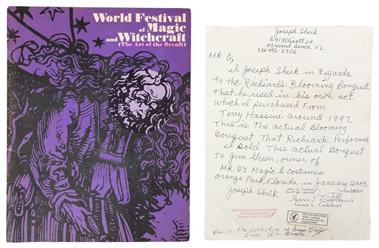 World Festival
of Magic
and Witchcraft
(The Art of the Occult)
Joseph Sheik
Ormond Beach FL
Mr G,
I Joseph Sheik in Regards
to the Richiardi Blooming Bouquet
That he used in his own act
which I purchased From
Tony Hassini around 1997.
This is the actual Blooming
Bouquet That Richiardi Performed
I Sold This actual Bouquet
To Jim Green, owner of
Mr. G's Magic & Costumes
Orange Park, Florida in January 2009.
Joseph Sheik